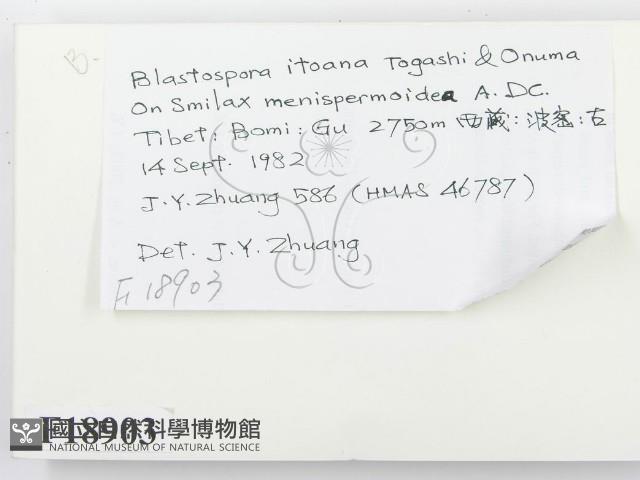 B-
Blastospora itoana Togashi & Onuma
On Smilax menispermoidea A. DC.
Tibet: Bomi: Gu 2750m 西藏: 波密: 古
14 Sept. 1982
J.Y. Zhuang 586 (HMAS 46787)
Det. J.Y. Zhuang
F18903
F18903
國立自然科學博物館
NATIONAL MUSEUM OF NATURAL SCIENCE